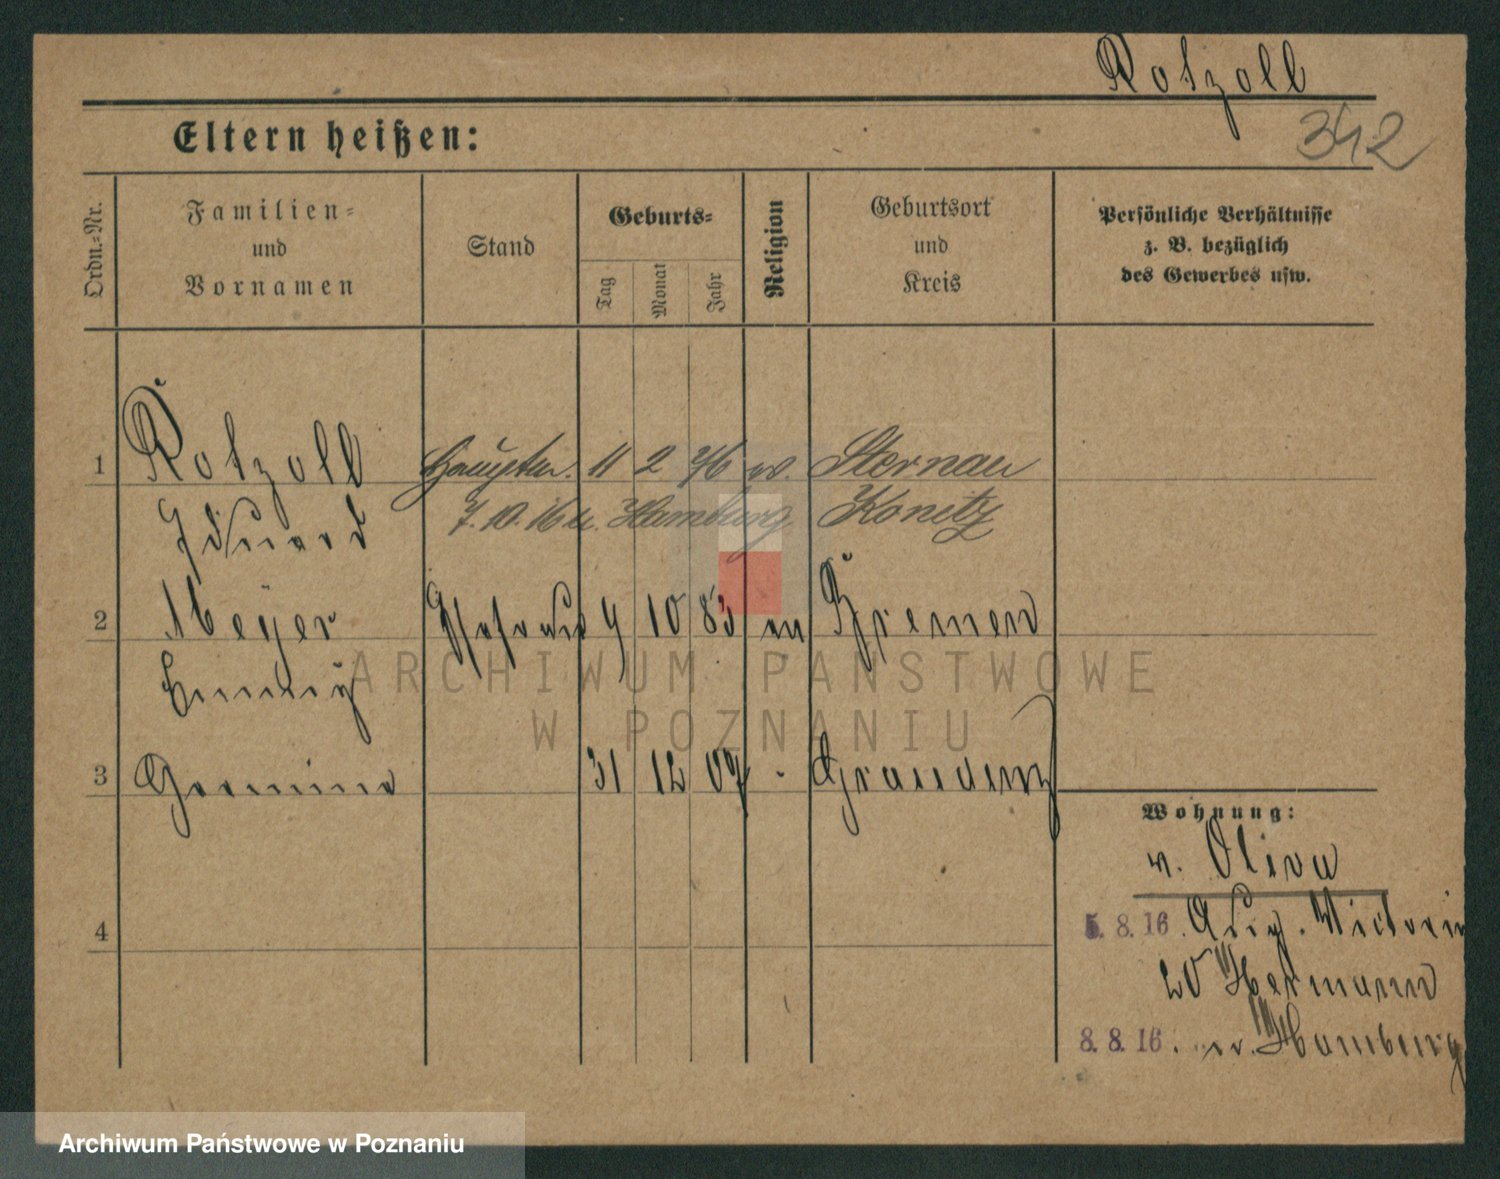 Rotzoll
342
Eltern heißen:
Ordn.=Nr.
Familien=
und
Vornamen
Stand
Geburts=
Tag
Monat
Jahr
Religion
Geburtsort
und
Kreis
Persönliche Verhältnisse
z. B. bezüglich
des Gewerbes usw.
1 Rotzoll Hauptm. 11 2 76 Sternau
Eduard 7. 10. 16 Hamburg Konitz
2 Meyer Ehefrau 4 10 83 Bremen
Emmy
3 31 12 07 Graudenz
4
Wohnung:
v. Oliva
5. 8. 16. Aug. Victoria
20 Hermann
8. 8. 16. Hamburg
ARCHIWUM PAŃSTWOWE
W POZNANIU
Archiwum Państwowe w Poznaniu